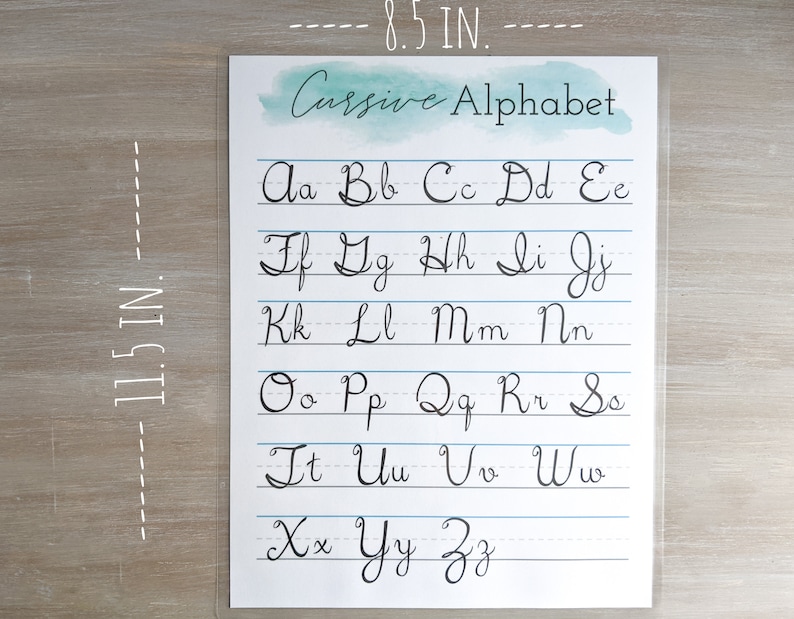 8.5 IN.
Cursive Alphabet
Aa Bb Cc Dd Ee
11.5 IN.
Ff Gg Hh Ii Jj
Kk Ll Mm Nn
Oo Pp Qq Rr Ss
Tt Uu Vv Ww
Xx Yy Zz